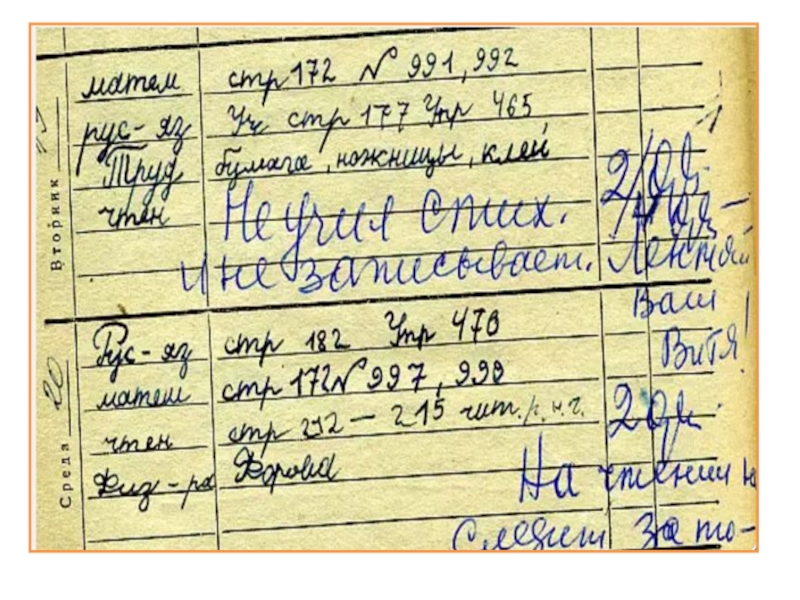 Вторник
матем стр 172 № 991, 992
рус-яз Уч стр 177 Упр 465
Труд бумага, ножницы, клей
чтен Не учил стих.
и не записывает. Лентяй
Ваш
Витя!
Среда 20
Рус-яз стр 182 Упр 470
матем стр 172 № 997, 998
чтен стр 212 – 215 чит.
Физ-ра Форма
На чтении не
следит за то-